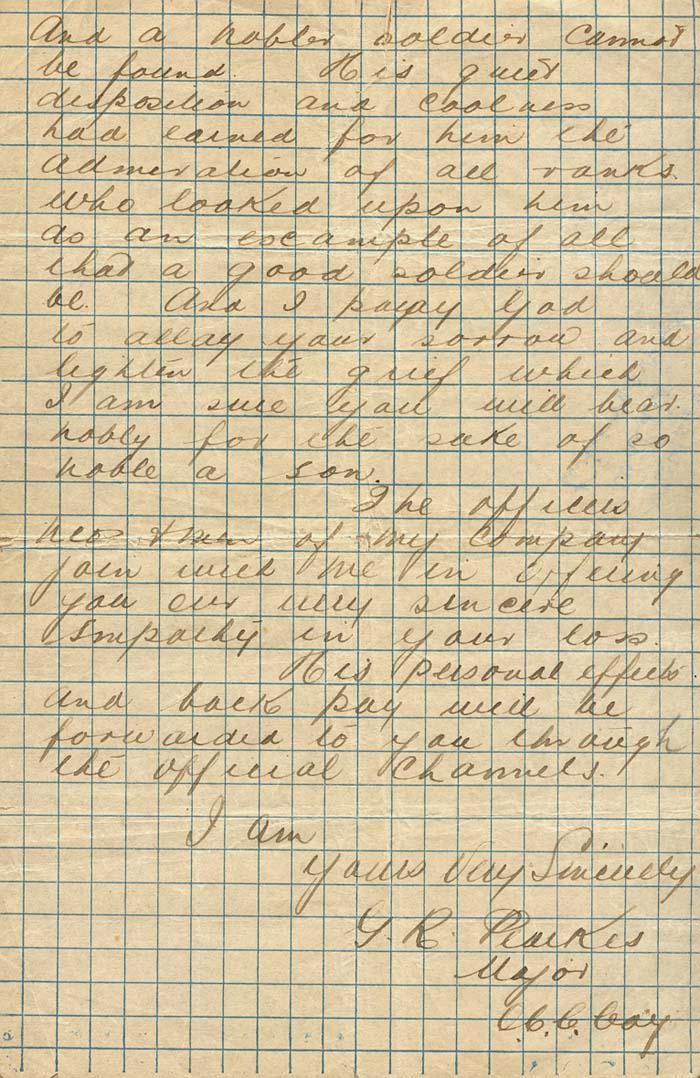 And a nobler soldier cannot
be found. His quiet
disposition and coolness
had earned for him the
admiration of all ranks.
Who looked upon him
as an escample of all
that a good soldier should
be. And I pray God
to allay your sorrow and
lighten the grief which
I am sure you will bear
nobly for the sake of so
noble a son.
The officers
ncos & men of my company
join with me in offering
you our very sincere
Smpathy in your loss.
His personal effects
and back pay will be
forwarded to you through
the official channels.
I am
yours Very Sincerely
G. R. Pearkes
Major
Coy